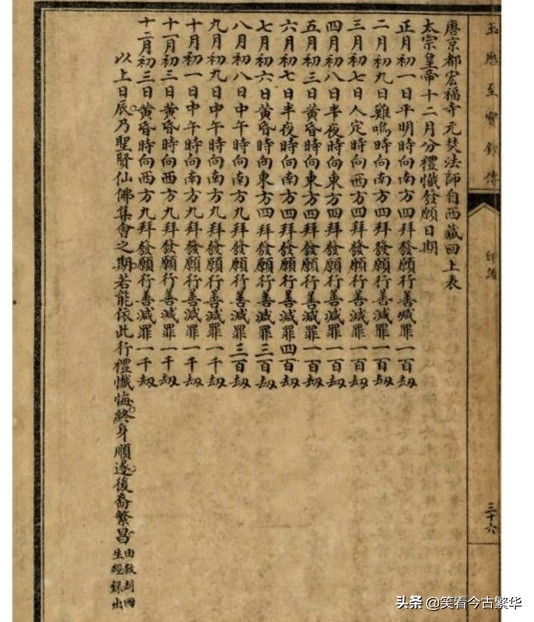 玉歷至寶鈔傳
印讚
三十六
唐京都宏福寺元奘法師自西藏回上表
太宗皇帝十二月分禮懺發願日期
正月初一日平明時向南方四拜發願行善減罪一百劫
二月初九日雞鳴時向南方四拜發願行善減罪一百劫
三月初七日人定時向西方四拜發願行善減罪一百劫
四月初八日半夜時向東方四拜發願行善減罪一百劫
五月初三日黃昏時向東方四拜發願行善減罪一百劫
六月初七日半夜時向東方四拜發願行善減罪四百劫
七月初六日黃昏時向東方四拜發願行善減罪三百劫
八月初八日中午時向南方九拜發願行善減罪三百劫
九月初九日中午時向南方九拜發願行善減罪一千劫
十月初一日中午時向南方九拜發願行善減罪一千劫
十一月初三日黃昏時向西方九拜發願行善減罪一千劫
十二月初三日黃昏時向西方九拜發願行善減罪一千劫
以上日辰乃聖賢仙佛集會之期若能依此行禮懺悔終身順遂後裔繁昌
由敬刻四
生經錄出
头条 @笑看今古繁华